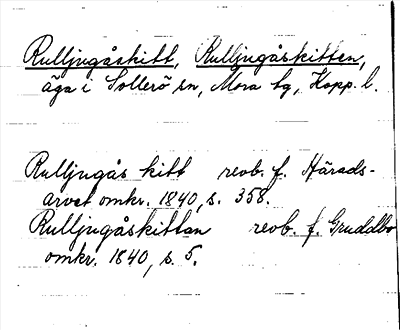 Rulljugåskitt, Rulljugåskitten,
äga i Sollerö sn, Mora tg, Kopp. l.
Rulljugås kitt reob. f. Härads-
arvet omkr. 1840, s. 358.
Rulljugåskittan reob. f. Gruddbo
omkr. 1840, s. 5.